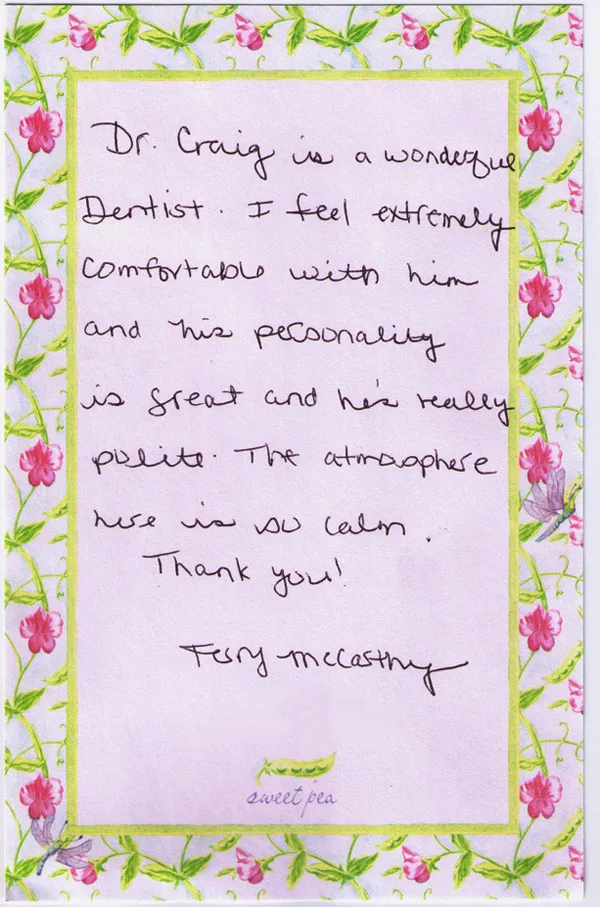 Dr. Craig is a wonderful
Dentist. I feel extremely
comfortable with him
and his personality
is great and he's really
polite. The atmosphere
here is so calm.
Thank you!
McCarthy
sweet pea